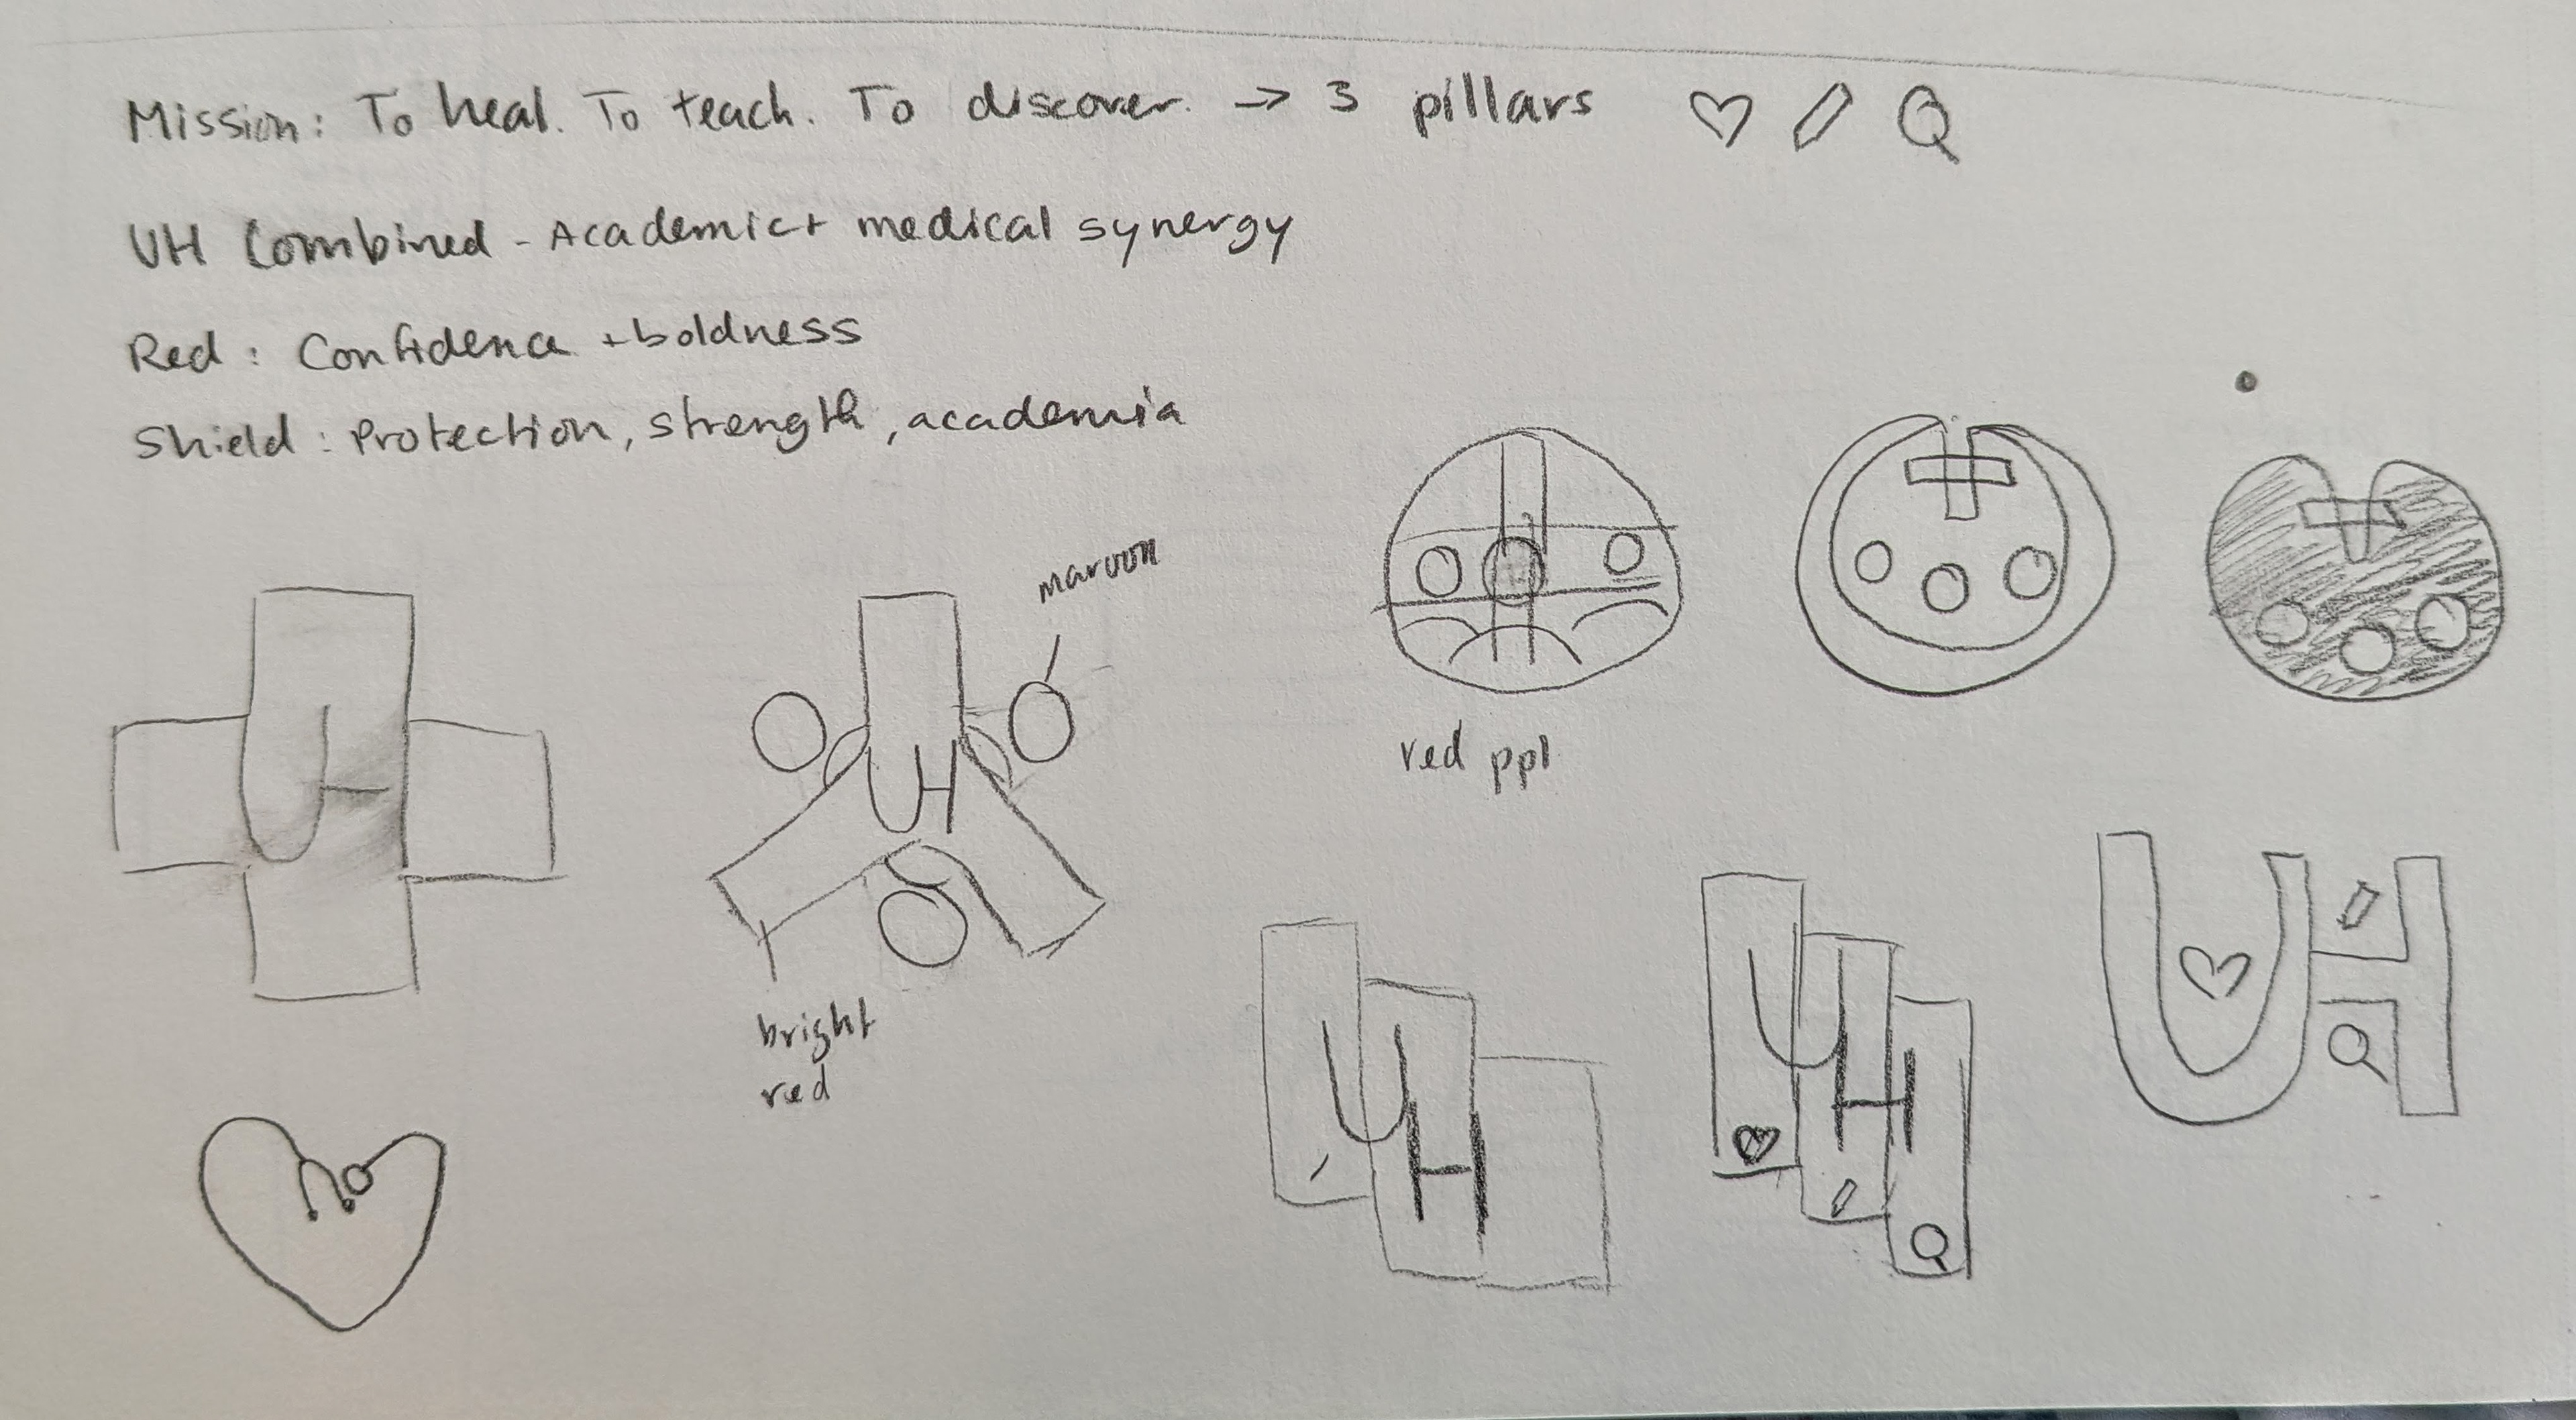 Mission: To heal. To teach. To discover. → 3 pillars
UH Combined - Academic + medical synergy
Red: Confidence + boldness
Shield: Protection, strength, academia
maroon
UH
UH
bright
red
red ppl
UH
UH
UH